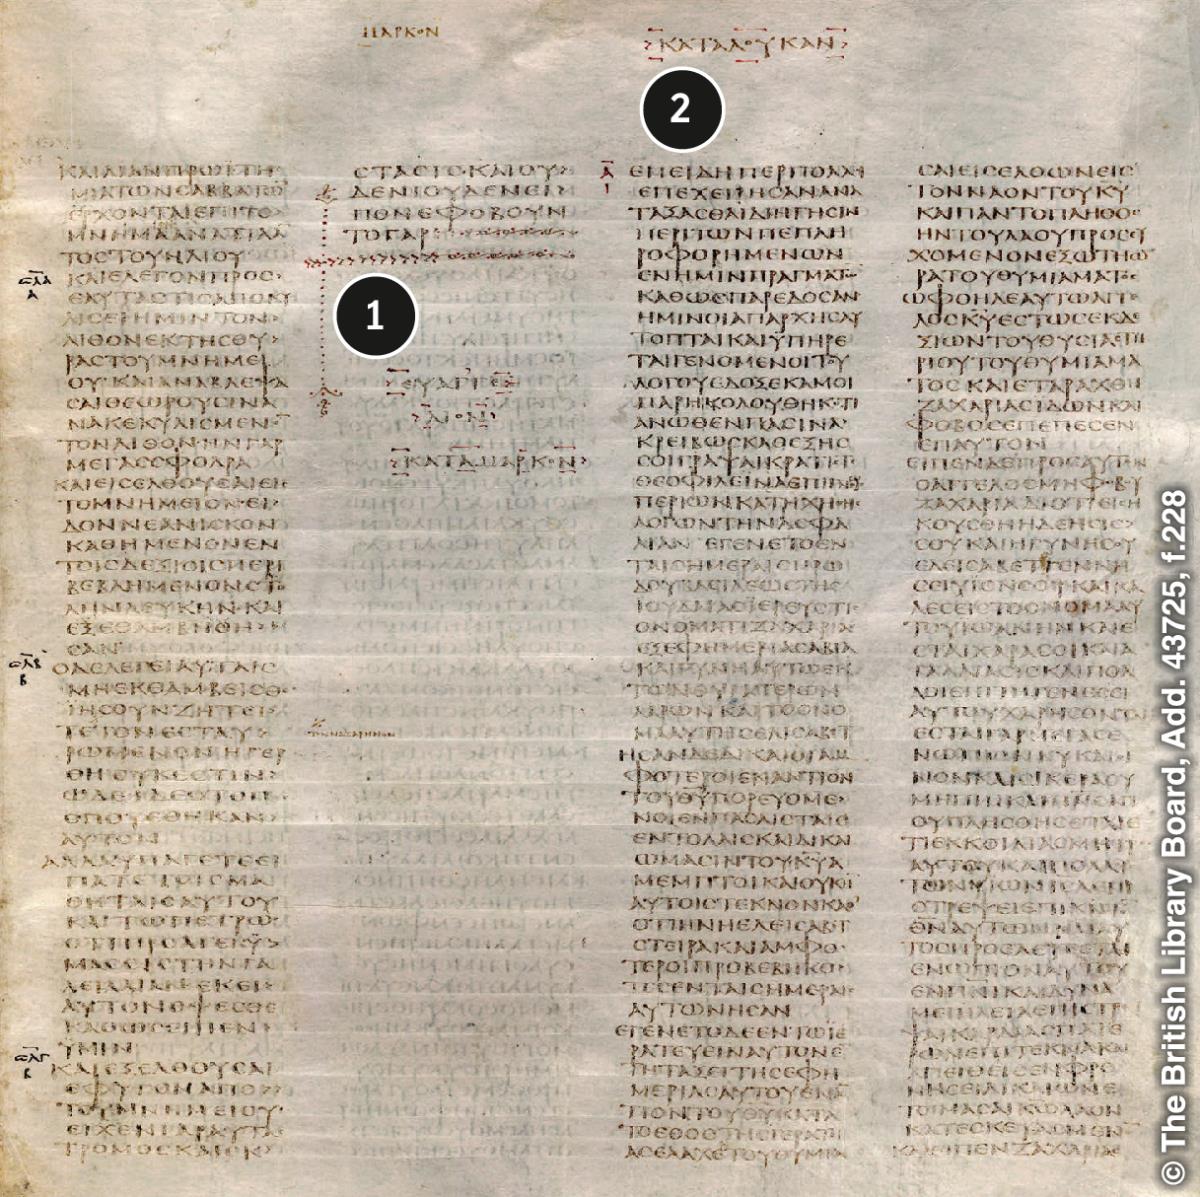 ΜΑΡΚΟΝ
ΚΑΤΑ ΛΟΥΚΑΝ
2
ΚΑΙΛΙΑΝΠΡΩΪΤΗ
ΜΙΑΤΩΝϹΑΒΒΑΤΩ
ΕΡΧΟΝΤΑΙΕΠΙΤΟ
ΜΝΗΜΑΑΝΑΤΙΛΑ
ΤΟϹΤΟΥΗΛΙΟΥ
ΚΑΙΕΛΕΓΟΝΠΡΟϹ
ΕΑΥΤΑϹΤΙϹΑΠΟΚΥ
ΛΙϹΕΙΗΜΙΝΤΟΝ
ΛΙΘΟΝΕΚΤΗϹΘΥ
ΡΑϹΤΟΥΜΝΗΜΕΙ
ΟΥΚΑΙΑΝΑΒΛΕΨΑ
ϹΑΙΘΕΩΡΟΥϹΙΝΑ
ΝΑΚΕΚΥΛΙϹΜΕΝΟ
ΤΟΝΛΙΘΟΝΗΝΓΑΡ
ΜΕΓΑϹϹΦΟΔΡΑ
ΚΑΙΕΙϹΕΛΘΟΥϹΑΙΕΙϹ
ΤΟΜΝΗΜΕΙΟΝΕΙ
ΔΟΝΝΕΑΝΙϹΚΟΝ
ΚΑΘΗΜΕΝΟΝΕΝ
ΤΟΙϹΔΕΞΙΟΙϹΠΕΡΙ
ΒΕΒΛΗΜΕΝΟΝϹΤΟ
ΛΗΝΛΕΥΚΗΝΚΑΙ
ΕΞΕΘΑΜΒΗΘΗ
ϹΑΝ
ΟΔΕΛΕΓΕΙΑΥΤΑΙϹ
ΜΗΕΚΘΑΜΒΕΙϹΘΕ
ΙΗϹΟΥΝΖΗΤΕΙ
ΤΕΤΟΝΕϹΤΑΥ
ΡΩΜΕΝΟΝΗΓΕΡ
ΘΗΟΥΚΕϹΤΙΝ
ΩΔΕΙΔΕΟΤΟΠΟϹ
ΟΠΟΥΕΘΗΚΑΝ
ΑΥΤΟΝ
ΑΛΛΑΥΠΑΓΕΤΕΕΙ
ΠΑΤΕΤΟΙϹΜΑ
ΘΗΤΑΙϹΑΥΤΟΥ
ΚΑΙΤΩΠΕΤΡΩ
ΟΤΙΠΡΟΑΓΕΙΥ
ΜΑϹΕΙϹΤΗΝΓΑ
ΛΕΙΛΑΙΑΝΕΚΕΙ
ΑΥΤΟΝΟΨΕϹΘΕ
ΚΑΘΩϹΕΙΠΕΝ
ΥΜΙΝ
ΚΑΙΕΞΕΛΘΟΥϹΑΙ
ΕΦΥΓΟΝΑΠΟ
ΤΟΥΜΝΗΜΕΙΟΥ
ΕΙΧΕΝΓΑΡΑΥΤΑϹ
ΤΡΟΜΟϹΚΑΙΕΚ
ϹΤΑϹΙϹΚΑΙΟΥ
ΔΕΝΙΟΥΔΕΝΕΙ
ΠΟΝΕΦΟΒΟΥΝ
ΤΟΓΑΡ
1
ΕΥΑΓΓΕ
ΛΙΟΝ
ΚΑΤΑΜΑΡΚΟΝ
ΕΠΕΙΔΗΠΕΡΠΟΛΛΟΙ
ΕΠΕΧΕΙΡΗϹΑΝΑΝΑ
ΤΑΞΑϹΘΑΙΔΙΗΓΗϹΙΝ
ΠΕΡΙΤΩΝΠΕΠΛΗ
ΡΟΦΟΡΗΜΕΝΩΝ
ΕΝΗΜΙΝΠΡΑΓΜΑΤ
ΚΑΘΩϹΠΑΡΕΔΟϹΑΝ
ΗΜΙΝΟΙΑΠΑΡΧΗϹΑΥ
ΤΟΠΤΑΙΚΑΙΥΠΗΡΕ
ΤΑΙΓΕΝΟΜΕΝΟΙΤΟΥ
ΛΟΓΟΥΕΔΟΞΕΚΑΜΟΙ
ΠΑΡΗΚΟΛΟΥΘΗΚΟΤΙ
ΑΝΩΘΕΝΠΑϹΙΝΑ
ΚΡΕΙΒΩϹΚΑΘΕΞΗϹ
ϹΟΙΓΡΑΨΑΙΚΡΑΤΙϹΤ
ΘΕΟΦΙΛΕΙΝΑΕΠΙΓΝΩϹ
ΠΕΡΙΩΝΚΑΤΗΧΗΘΗϹ
ΛΟΓΩΝΤΗΝΑϹΦΑ
ΛΙΑΝ ΕΓΕΝΕΤΟΕΝ
ΤΑΙϹΗΜΕΡΑΙϹΗΡΩ
ΔΟΥΒΑϹΙΛΕΩϹΤΗϹ
ΙΟΥΔΑΙΑϹΙΕΡΕΥϹΤΙϹ
ΟΝΟΜΑΤΙΖΑΧΑΡΙΑϹ
ΕΞΕΦΗΜΕΡΙΑϹΑΒΙΑ
ΚΑΙΓΥΝΗΑΥΤΩΕΚ
ΤΩΝΘΥΓΑΤΕΡΩΝ
ΑΑΡΩΝΚΑΙΤΟΟΝΟ
ΜΑΑΥΤΗϹΕΛΙϹΑΒΕΤ
ΗϹΑΝΔΕΔΙΚΑΙΟΙΑΜ
ΦΟΤΕΡΟΙΕΝΑΝΤΙΟΝ
ΤΟΥΘΥΠΟΡΕΥΟΜΕ
ΝΟΙΕΝΠΑϹΑΙϹΤΑΙϹ
ΕΝΤΟΛΑΙϹΚΑΙΔΙΚΑΙ
ΩΜΑϹΙΝΤΟΥΚΥΑ
ΜΕΜΠΤΟΙΚΑΙΟΥΚΗ
ΑΥΤΟΙϹΤΕΚΝΟΝΚΑ
ΟΤΙΗΝΗΕΛΕΙϹΑΒΕΤ
ϹΤΕΙΡΑΚΑΙΑΜΦΟ
ΤΕΡΟΙΠΡΟΒΕΒΗΚΟ
ΤΕϹΕΝΤΑΙϹΗΜΕΡΑΙϹ
ΑΥΤΩΝΗϹΑΝ
ΕΓΕΝΕΤΟΔΕΕΝΤΩΙΕ
ΡΑΤΕΥΕΙΝΑΥΤΟΝΕ
ΤΗΤΑΞΕΙΤΗϹΕΦΗ
ΜΕΡΙΑϹΑΥΤΟΥΕΝΑ
ΤΙΟΝΤΟΥΘΥΚΑΤΑ
ΤΟΕΘΟϹΤΗϹΙΕΡΑΤΙ
ΑϹΕΛΑΧΕΤΟΥΘΥΜΙΑ
ϹΑΙΕΙϹΕΛΘΩΝΕΙϹ
ΤΟΝΝΑΟΝΤΟΥΚΥ
ΚΑΙΠΑΝΤΟΠΛΗΘΟϹ
ΗΝΤΟΥΛΑΟΥΠΡΟϹΕΥ
ΧΟΜΕΝΟΝΕΞΩΤΗΩ
ΡΑΤΟΥΘΥΜΙΑΜΑΤΟϹ
ΩΦΘΗΔΕΑΥΤΩΑΓΓΕ
ΛΟϹΚΥΕϹΤΩϹΕΚΔΕ
ΞΙΩΝΤΟΥΘΥϹΙΑϹΤΗ
ΡΙΟΥΤΟΥΘΥΜΙΑΜΑ
ΤΟϹΚΑΙΕΤΑΡΑΧΘΗ
ΖΑΧΑΡΙΑϹΙΔΩΝΚΑΙ
ΦΟΒΟϹΕΠΕΠΕϹΕΝ
ΕΠΑΥΤΟΝ
ΕΙΠΕΝΔΕΠΡΟϹΑΥΤΟΝ
ΟΑΓΓΕΛΟϹΜΗΦΟΒΟΥ
ΖΑΧΑΡΙΑΔΙΟΤΙΕΙϹΗ
ΚΟΥϹΘΗΗΔΕΗϹΙϹ
ϹΟΥΚΑΙΗΓΥΝΗϹΟΥ
ΕΛΕΙϹΑΒΕΤΓΕΝΝΗ
ϹΕΙΥΙΟΝϹΟΙΚΑΙΚΑ
ΛΕϹΕΙϹΤΟΟΝΟΜΑΑΥ
ΤΟΥΙΩΑΝΝΗΝΚΑΙΕ
ϹΤΑΙΧΑΡΑϹΟΙΚΑΙ
ΑΓΑΛΛΙΑϹΙϹΚΑΙΠΟΛ
ΛΟΙΕΠΙΤΗΓΕΝΕϹΕΙ
ΑΥΤΟΥΧΑΡΗϹΟΝΤΑΙ
ΕϹΤΑΙΓΑΡΜΕΓΑϹΕ
ΝΩΠΙΟΝΚΥΚΑΙΟΙ
ΝΟΝΚΑΙϹΙΚΕΡΑΟΥ
ΜΗΠΙΗΚΑΙΠΝϹΑΓΙ
ΟΥΠΛΗϹΘΗϹΕΤΑΙΕ
ΤΙΕΚΚΟΙΛΙΑϹΜΗΤΡΟϹ
ΑΥΤΟΥΚΑΙΠΟΛΛΟΥϹ
ΤΩΝΥΙΩΝΙϹΛΕΠΙ
ϹΤΡΕΨΕΙΕΠΙΚΝΤΟΝ
ΘΝΑΥΤΩΝΚΑΙΑΥ
ΤΟϹΠΡΟΕΛΕΥϹΕΤΑΙ
ΕΝΩΠΙΟΝΑΥΤΟΥ
ΕΝΠΝΙΚΑΙΔΥΝΑ
ΜΕΙΗΛΕΙΑΕΠΙϹΤΡΕ
ΨΑΙΚΑΡΔΙΑϹΠΑΤΕ
ΡΩΝΕΠΙΤΕΚΝΑΚΑΙ
ΑΠΕΙΘΕΙϹΕΝΦΡΟ
ΝΗϹΕΙΔΙΚΑΙΩΝΕ
ΤΟΙΜΑϹΑΙΚΩΛΑΟΝ
ΚΑΤΕϹΚΕΥΑϹΜΕΝΟΝ
ΚΑΙΕΙΠΕΝΖΑΧΑΡΙΑϹ
© The British Library Board, Add. 43725, f.228